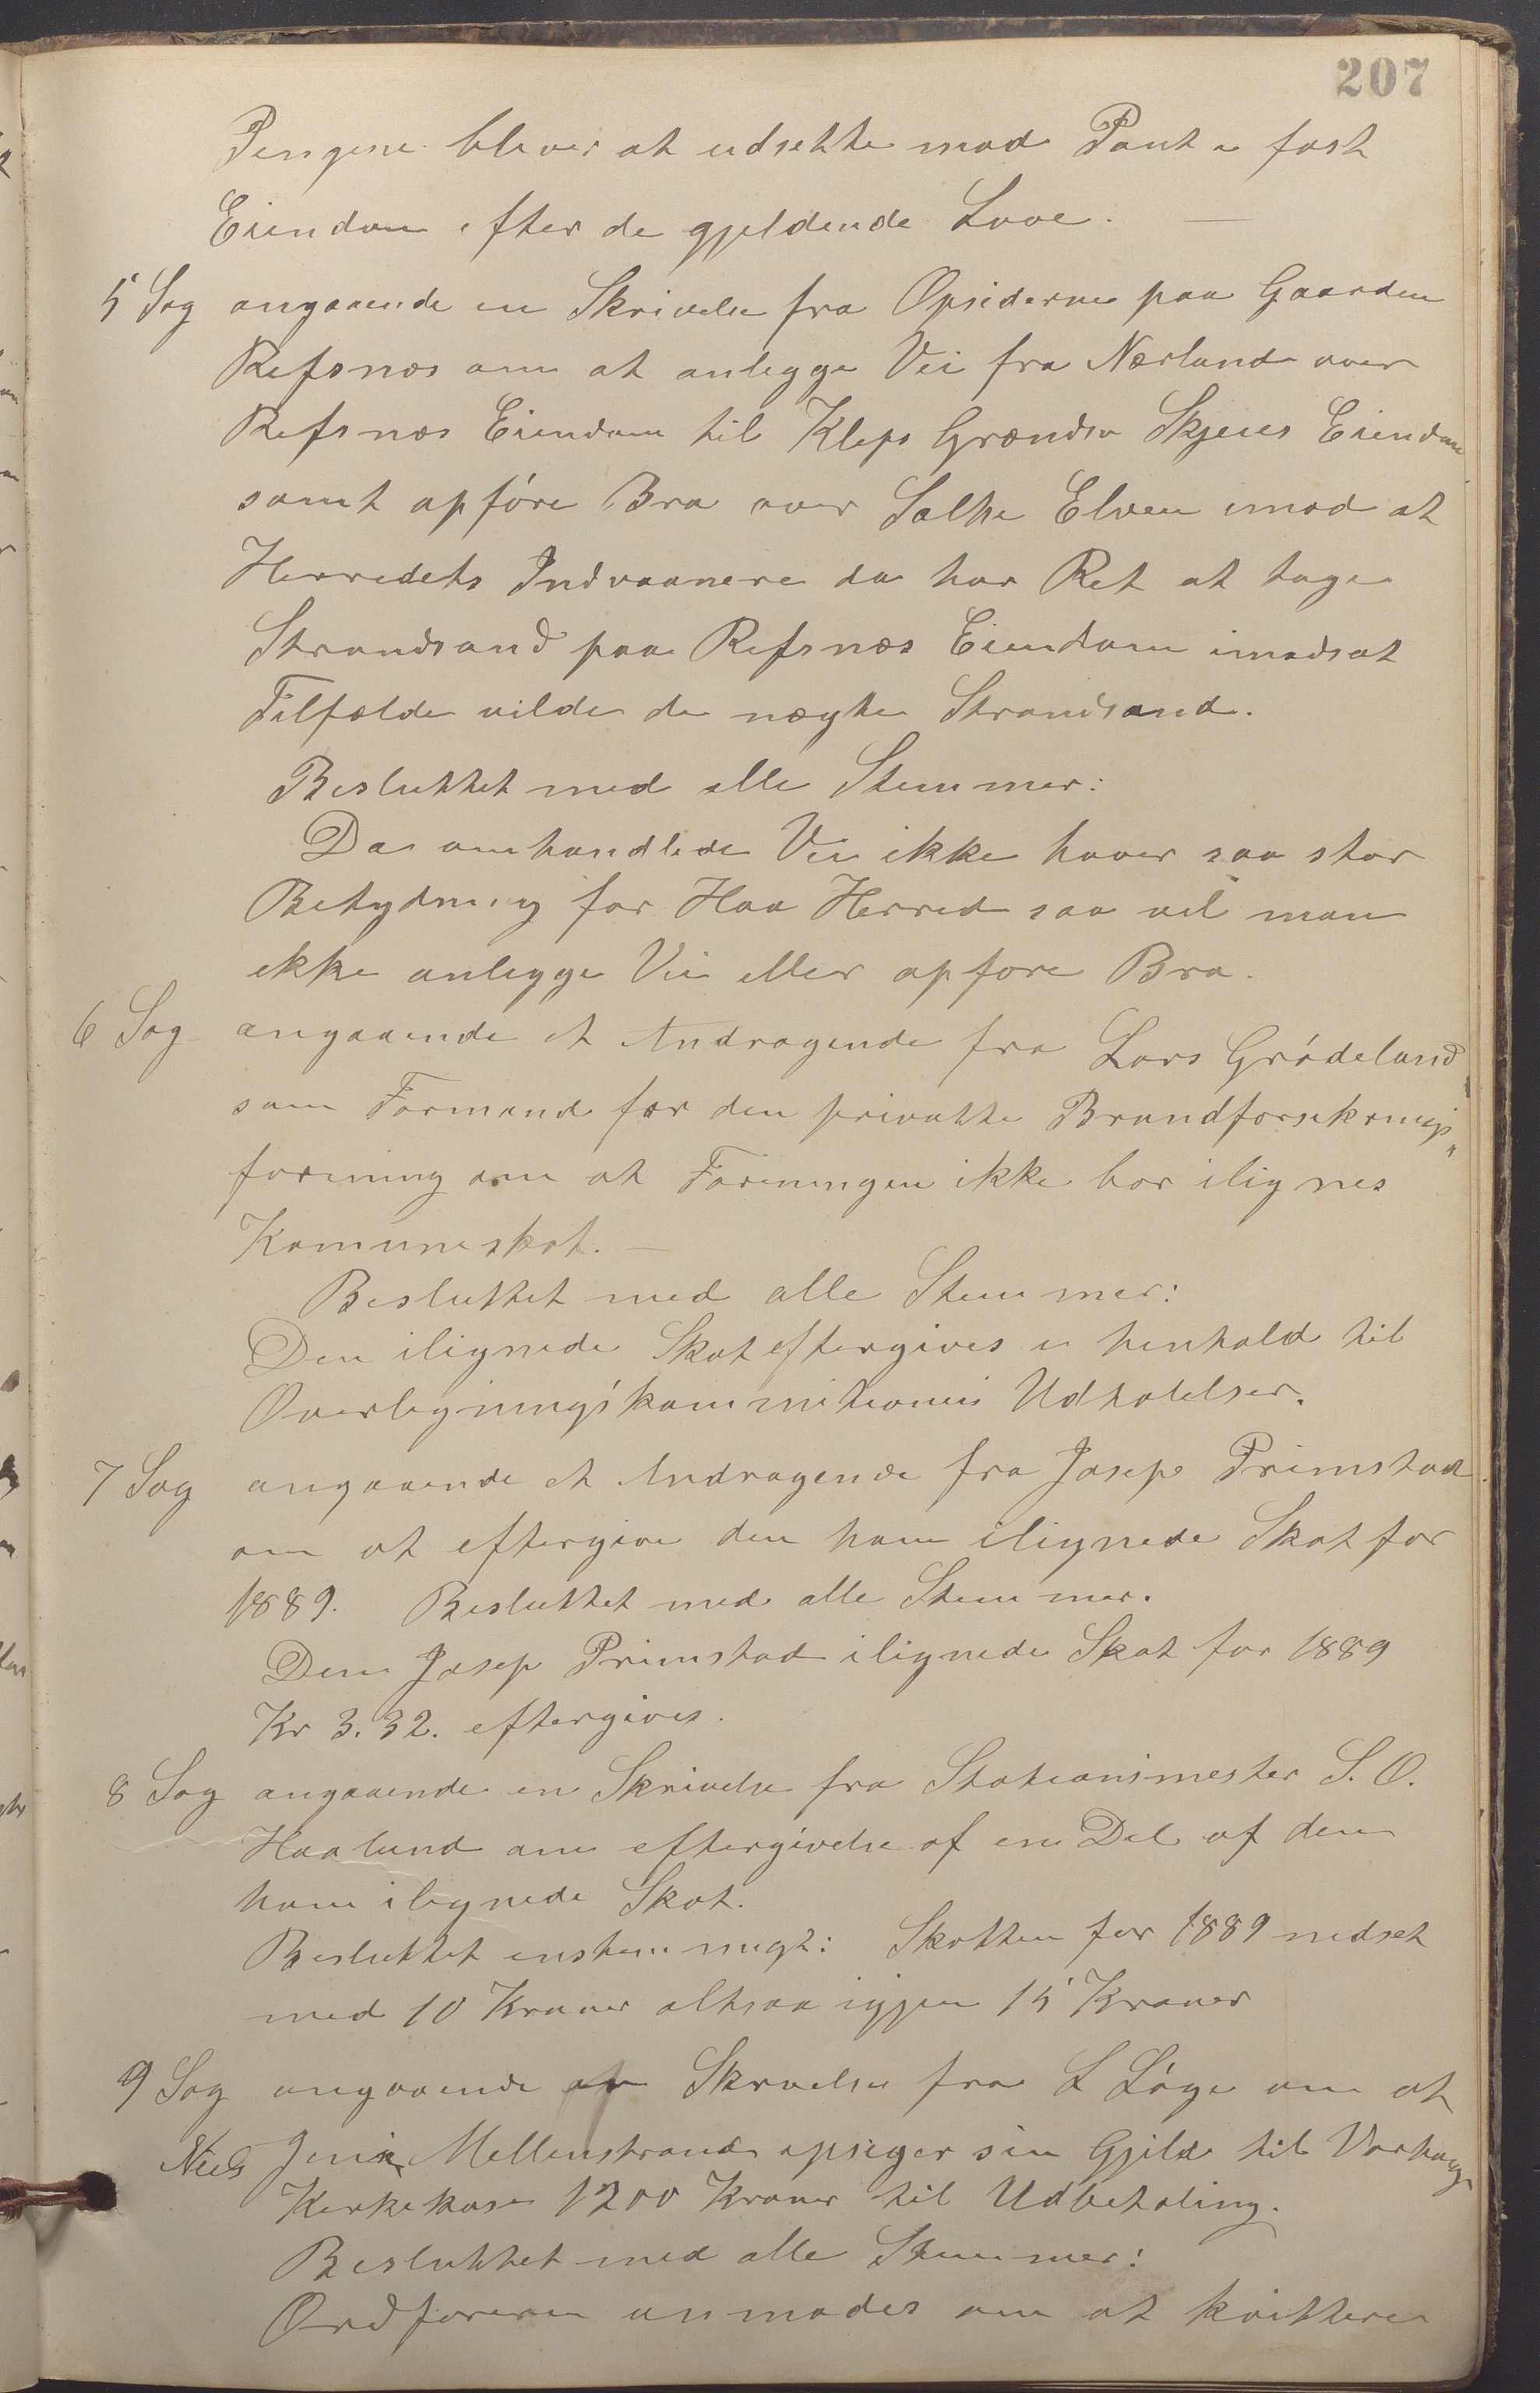 207
Pengene bliver at udsette mod Pant i fast
Eiendom efter de gjeldende Love. —
5 Sag angaaende en Skrivelse fra Opsiderne paa Gaarden
Refsnæs om at anlegge Vei fra Nærland over
Refsnæs Eiendom til Kleps Grændse Skjeies Eiendom
samt opføre Bro over Salte Elven imod at
Herredets Indvaanere da har Ret at tage
Strandsand paa Refsnæs Eiendom imodsat
Tilfælde vilde de nægte Strandsand.
Besluttet med alle Stemmer:
Da omhandlede Vei ikke haver saa stor
Betydning for Haa Herred saa vil man
ikke anlegge Vei eller opføre Bro.
6 Sag angaaende et Andragende fra Lars Grødeland
som Formand for den privatte Brandforsikrings„
forening om at Foreningen ikke bør ilignes
Komuneskat. —
Besluttet med alle Stemmer:
Den ilignede Skat eftergives i henhold til
Overligningskommitionens Udtalelser.
7 Sag angaaende et Andragende fra Josep Primstad
om at eftergive den ham ilignede Skat for
1889. Besluttet med alle Stemmer.
Den Josep Primstad ilignede Skat for 1889
Kr 3.32. eftergives.
8 Sag angaaende en Skrivelse fra Stationsmester S. O.
Haaland om eftergivelse af en Del af den
ham ilignede Skat.
Besluttet enstemmigt: Skatten for 1889 nedset
med 10 Kroner altsaa igjen 15 Kroner
9 Sag angaaende en Skrivelse fra L Løge om at
Niels Jensen Mellemstrand opsiger sin Gjeld til Varhoug
Kirkekase 1200 Kroner til Udbetaling.
Besluttet med alle Stemmer:
Ordføreren anmodes om at kvittere